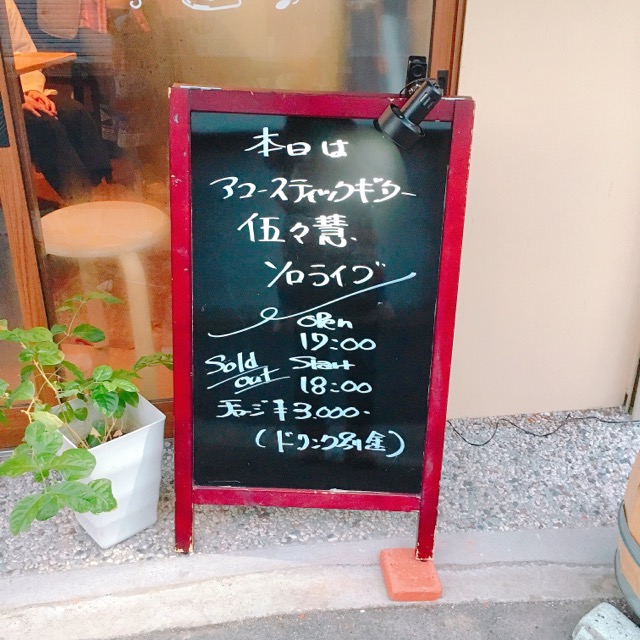 本日は
アコースティックギター
伍々慧
ソロライブ
open
17:00
Sold out
Start
18:00
チャージ ¥3,000-
(ドリンク別金)